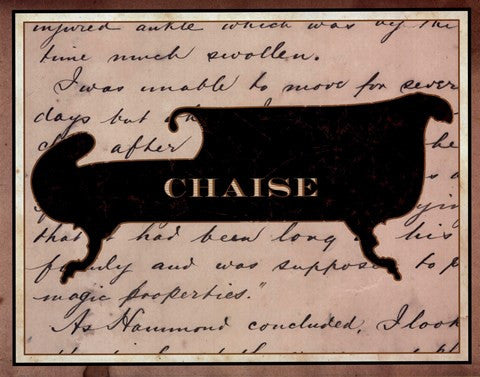 injured ankle which was by the
time much swollen.
I was unable to move for sever
days but
after he
CHAISE
that had been long his
and was suppose to p
magic properties."
As Hammond concluded, I look